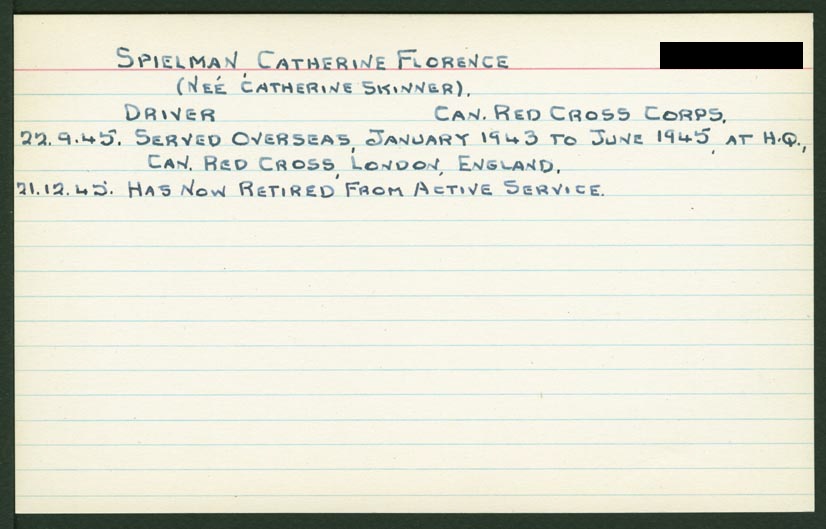 SPIELMAN, CATHERINE FLORENCE
(NEÉ CATHERINE SKINNER).
DRIVER CAN. RED CROSS CORPS.
22.9.45. SERVED OVERSEAS, JANUARY 1943 TO JUNE 1945, AT H.Q.,
CAN. RED CROSS, LONDON, ENGLAND.
21.12.45. HAS NOW RETIRED FROM ACTIVE SERVICE.